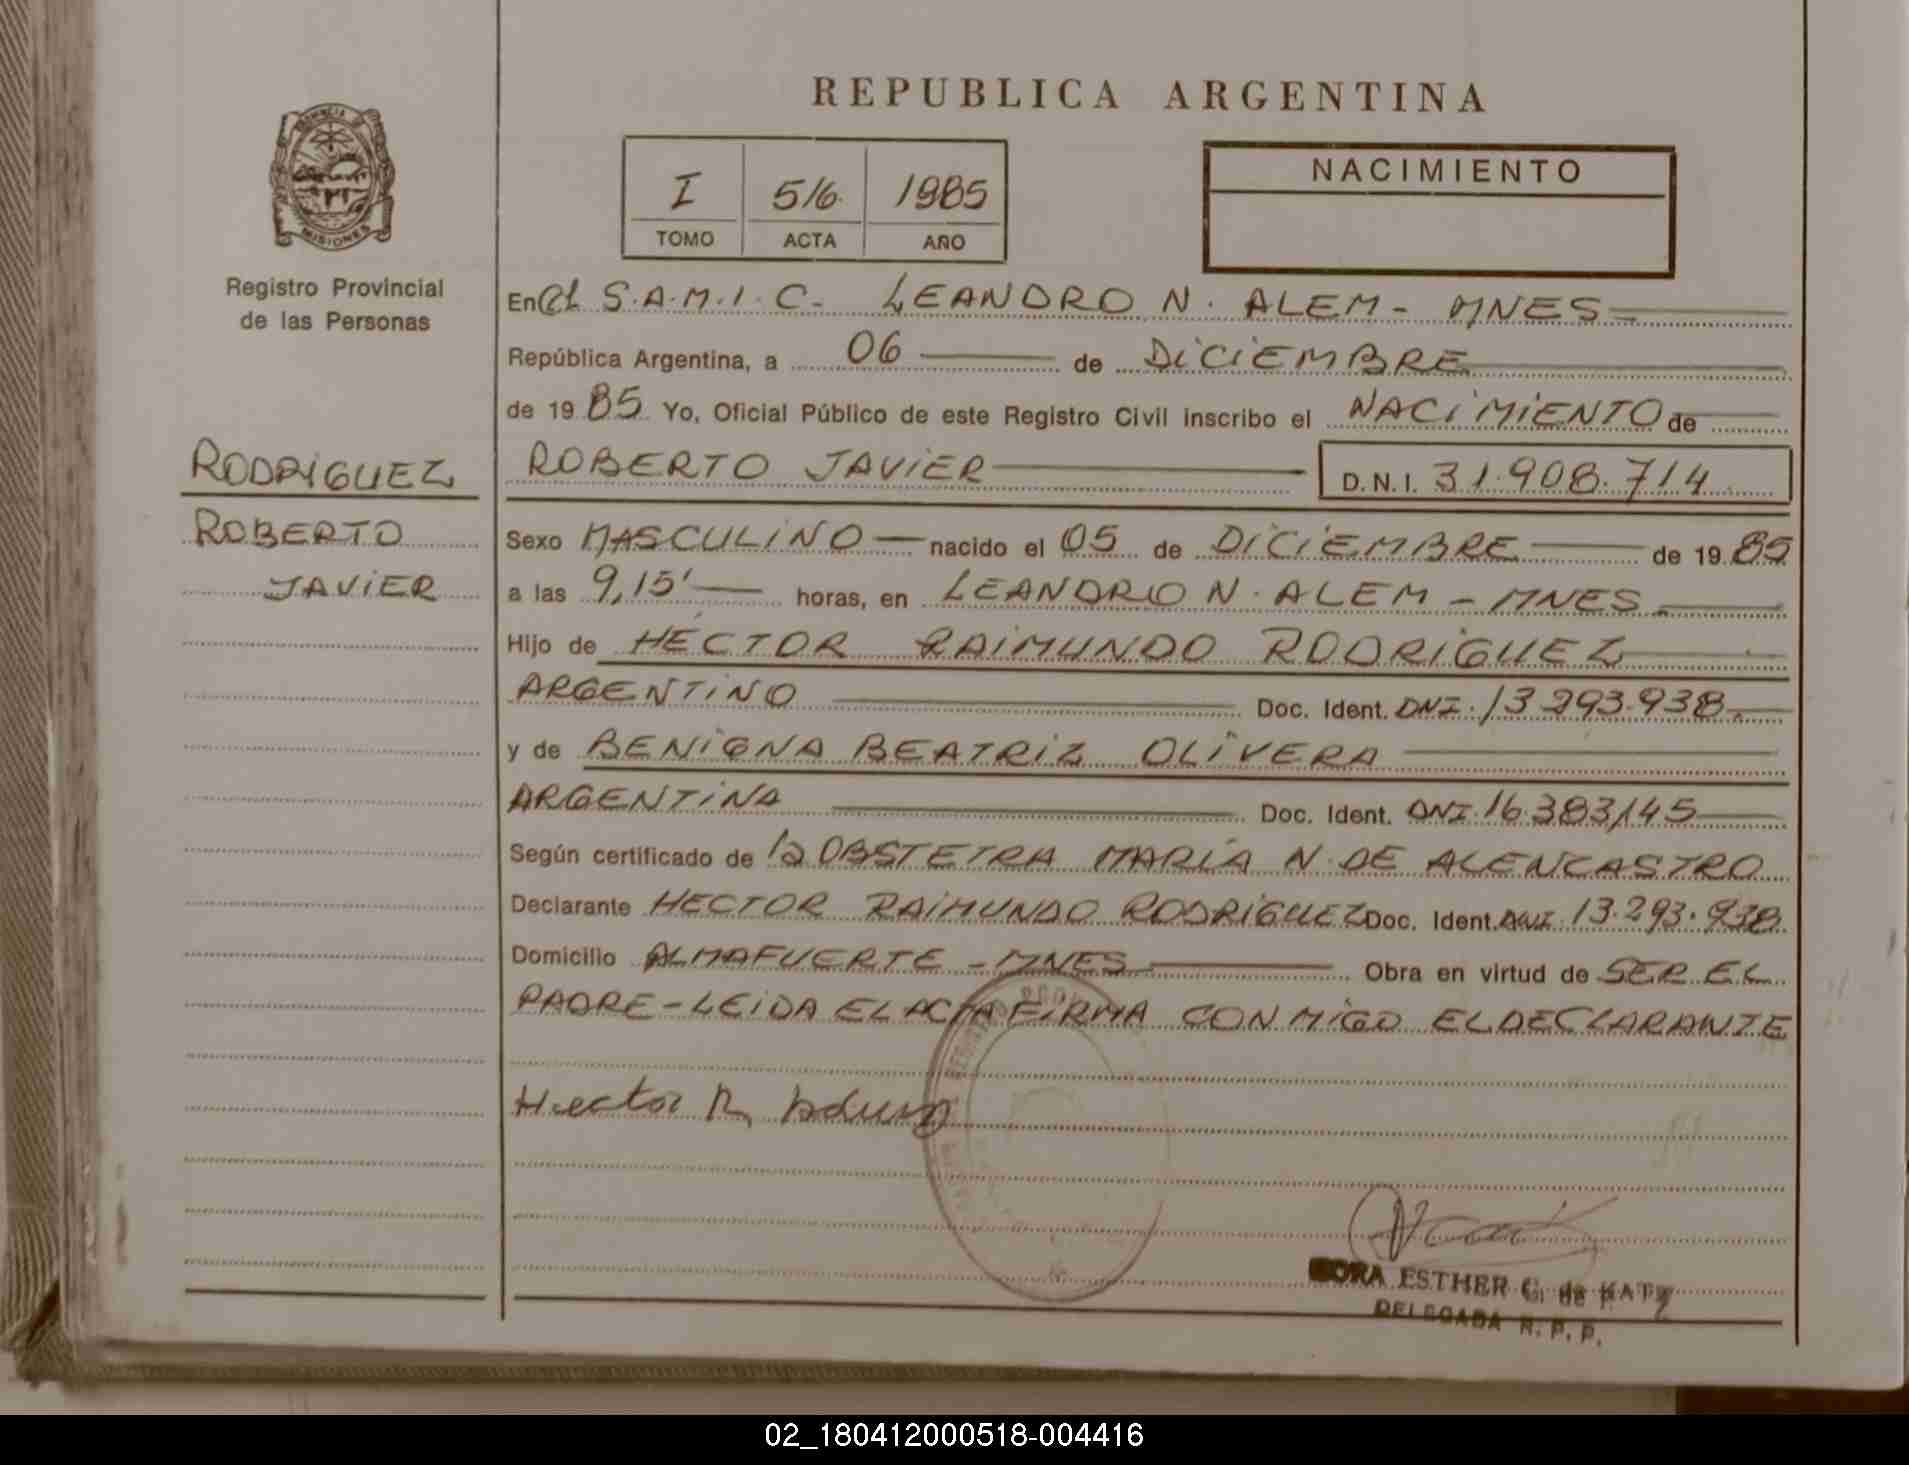 REPUBLICA ARGENTINA
PROVINCIA DE
MISIONES
Registro Provincial
de las Personas
I 516 1985
TOMO ACTA AÑO
NACIMIENTO
En el S.A.M.I.C. LEANDRO N. ALEM - MNES
República Argentina, a 06 de DICIEMBRE
de 1985 Yo, Oficial Público de este Registro Civil inscribo el NACIMIENTO de
RODRIGUEZ
ROBERTO
JAVIER
ROBERTO JAVIER D.N.I. 31.908.714
Sexo MASCULINO nacido el 05 de DICIEMBRE de 1985
a las 9,15' horas, en LEANDRO N. ALEM - MNES
Hijo de HÉCTOR RAIMUNDO RODRIGUEZ
ARGENTINO Doc. Ident. DNI. 13.293.938.
y de BENIGNA BEATRIZ OLIVERA
ARGENTINA Doc. Ident. DNI. 16.383,145
Según certificado de la OBSTETRA MARÍA N. DE ALENCASTRO
Declarante HECTOR RAIMUNDO RODRIGUEZ Doc. Ident. DNI. 13.293.938
Domicilio ALMAFUERTE - MNES Obra en virtud de SER EL
PADRE - LEIDA EL ACTA FIRMA CONMIGO EL DECLARANTE
Hector R.
ESTHER G. de KATZ
DELEGADA R. P. P.
02_180412000518-004416